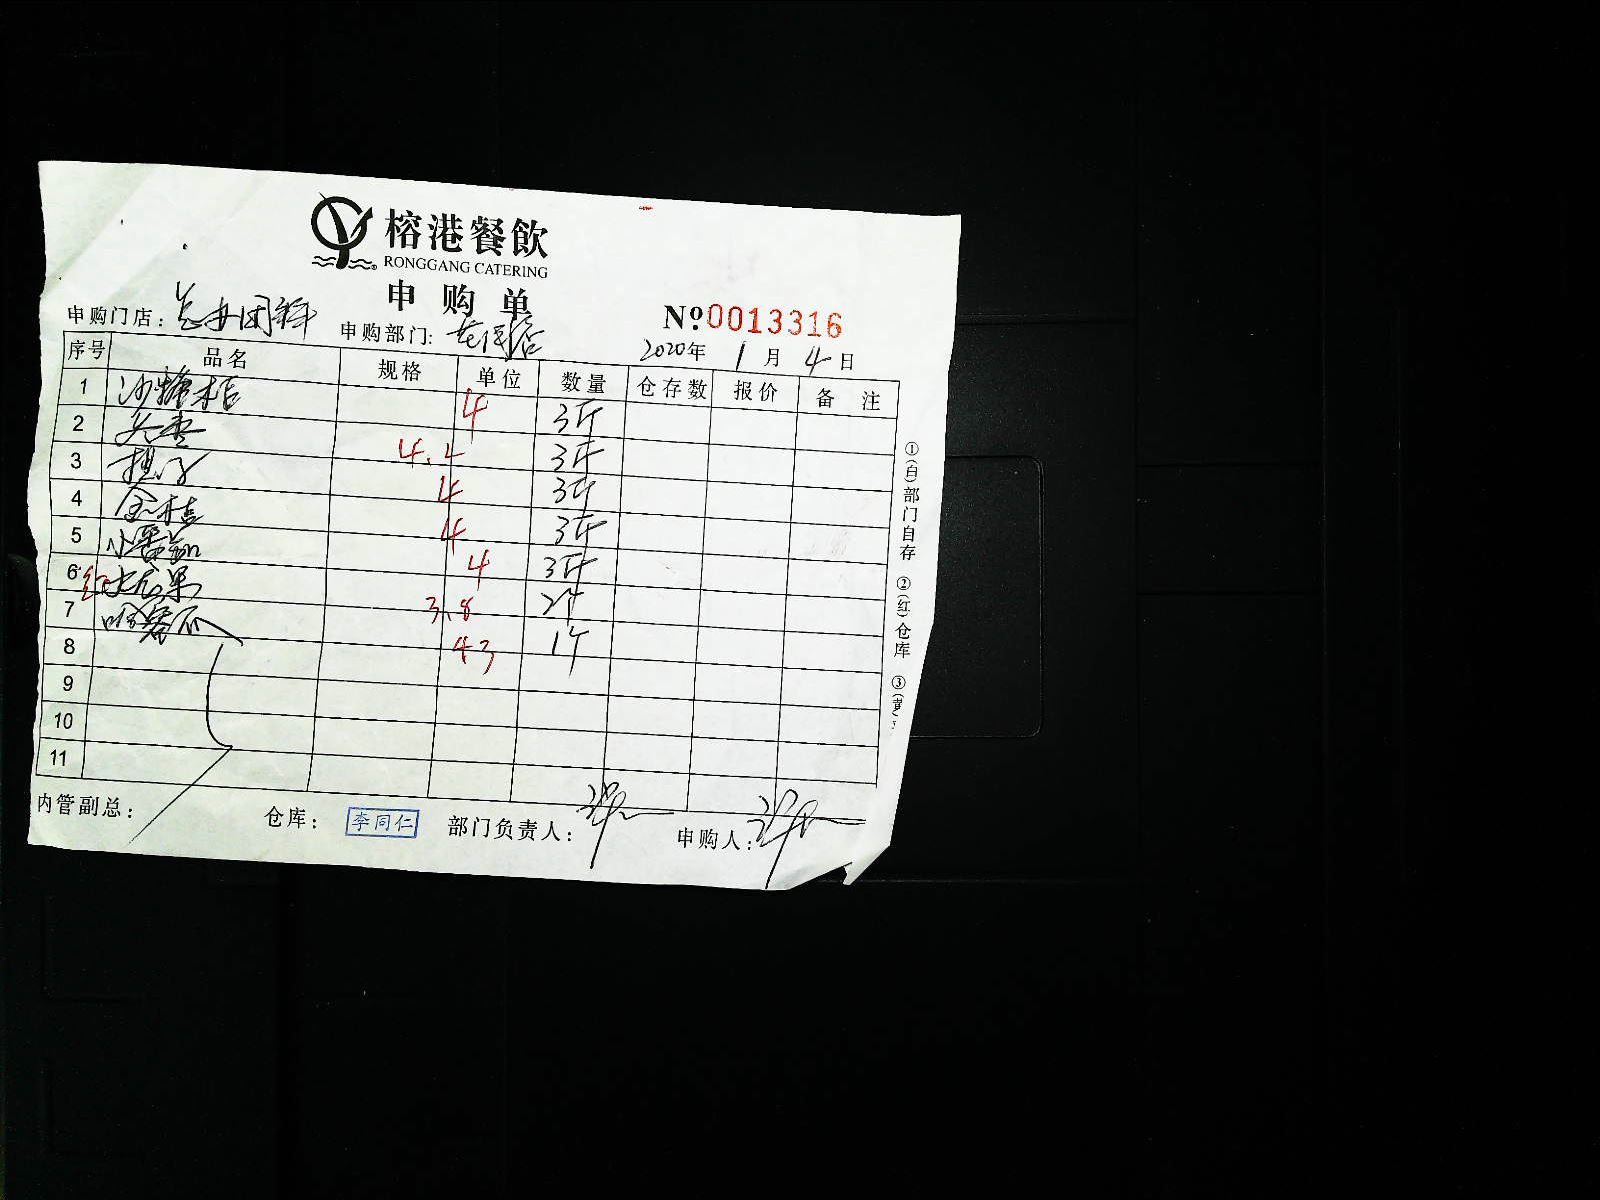 榕港餐飲
RONGGANG CATERING
申购单
№0013316
申购门店：
申购部门:
2020年 1月 4日
序号 品名 规格 单位 数量 仓存数 报价 备注
1 沙糖桔 4 3斤
2 冬枣 4.2 3斤
3 4 3斤
4 金桔 4 3斤
5 小番茄 4 3斤
6 红火龙果 3.8 2个
7 哈蜜瓜 43 1个
8
9
10
11
①(白)部门自存 ②(红)仓库 ③(黄)
内管副总： 仓库： 李同仁 部门负责人： 申购人：